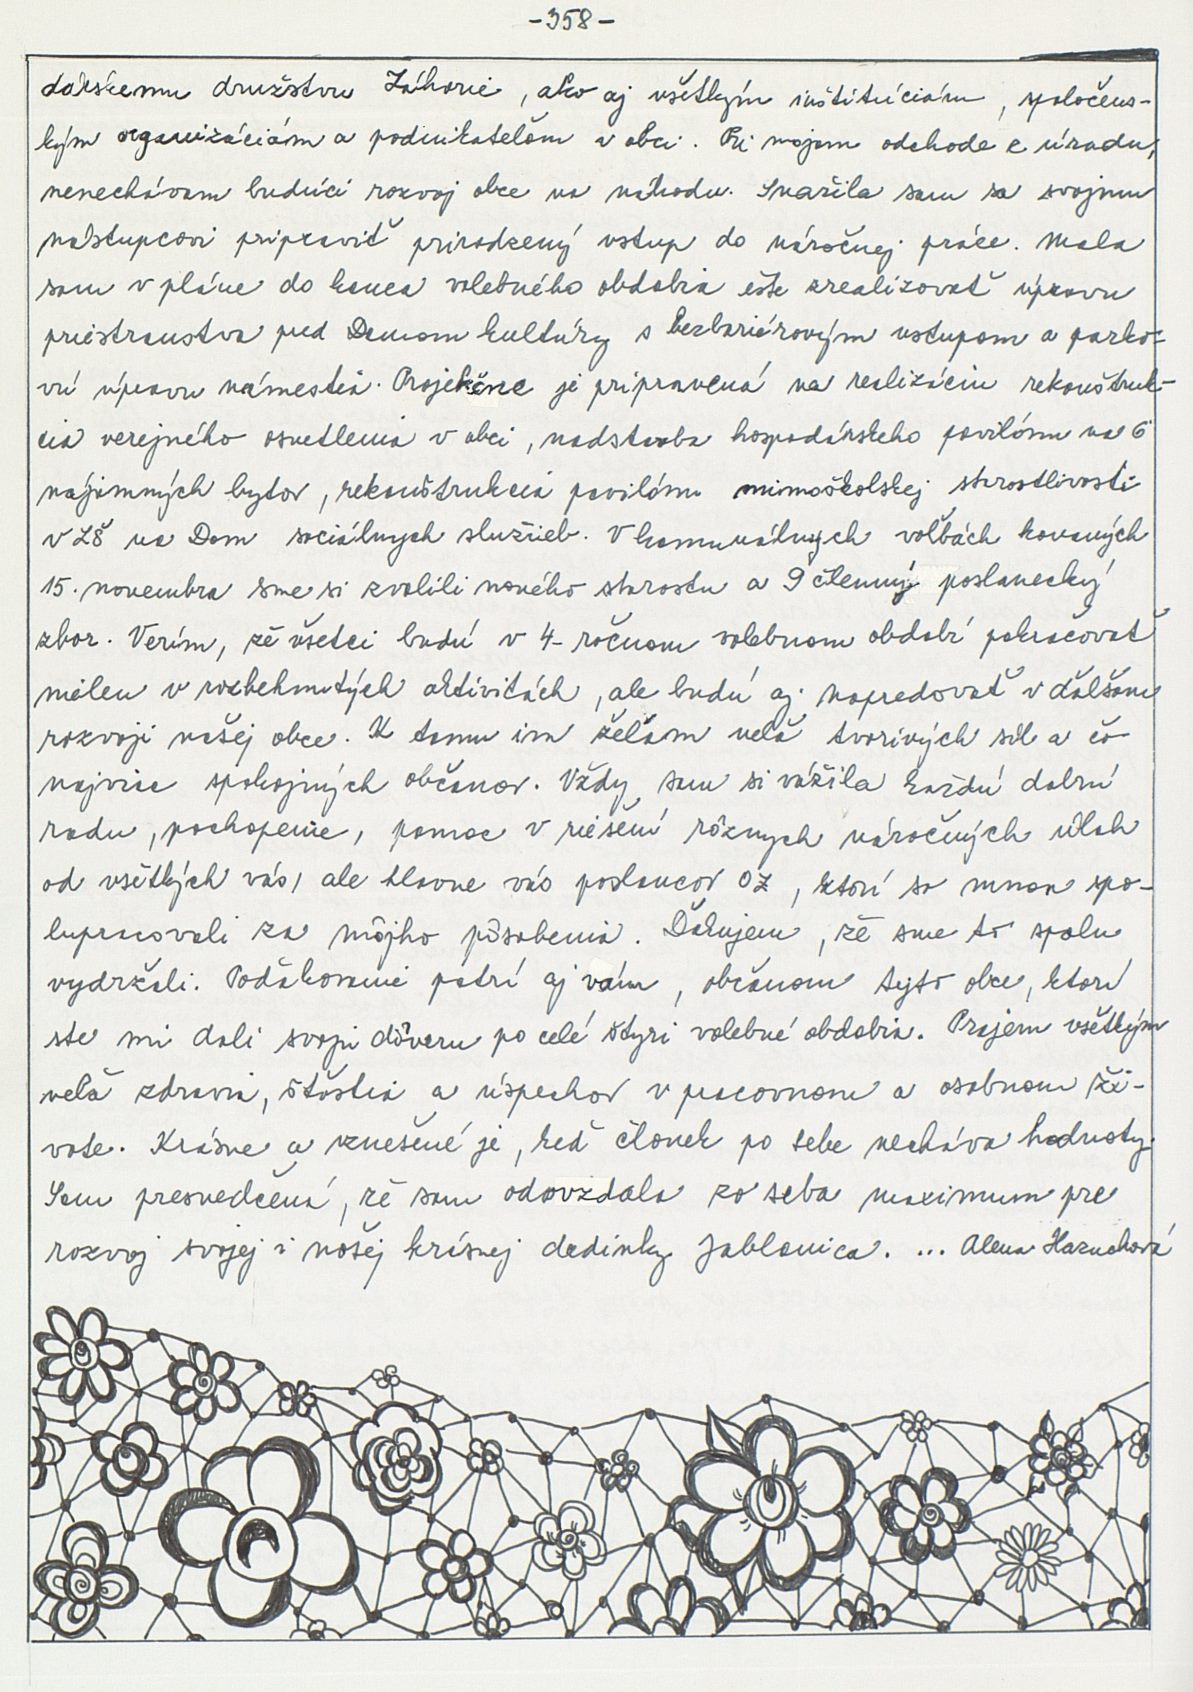 -358-
dárskemu družstvu Záhorie, ako aj všetkým inštitúciám, spoločens-
kým organizáciám a podnikateľom v obci. Pri mojom odchode z úradu,
nenechávam budúci rozvoj obce na náhodu. Snažila som sa svojmu
nástupcovi pripraviť prirodzený vstup do náročnej práce. Mala
som v pláne do konca volebného obdobia ešte zrealizovať úpravu
priestranstva pred Domom kultúry s bezbariérovým vstupom a parko-
vú úpravu námestia. Projekčne je pripravená na realizáciu rekonštruk-
cia verejného osvetlenia v obci, nadstavba hospodárskeho pavilónu na 6
nájomných bytov, rekonštrukcia pavilónu mimoškolskej starostlivosti
v ZŠ na Dom sociálnych služieb. V komunálnych voľbách konaných
15. novembra sme si zvolili nového starostu a 9 členný poslanecký
zbor. Verím, že všetci budú v 4-ročnom volebnom období pokračovať
nielen v rozbehnutých aktivitách, ale budú aj napredovať v ďalšom
rozvoji našej obce. K tomu im želám veľa tvorivých síl a čo
najviac spokojných občanov. Vždy som si vážila každú dobrú
radu, pochopenie, pomoc v riešení rôznych náročných úloh
od všetkých vás, ale hlavne vás poslancov OZ, ktorí so mnou spo-
lupracovali za môjho pôsobenia. Ďakujem, že sme to spolu
vydržali. Poďakovanie patrí aj vám, občanom tejto obce, ktorí
ste mi dali svoju dôveru po celé štyri volebné obdobia. Prajem všetkým
veľa zdravia, šťastia a úspechov v pracovnom a osobnom ži-
vote. Krásne a vznešené je, keď človek po sebe necháva hodnoty.
Som presvedčená, že som odovzdala zo seba maximum pre
rozvoj svojej i našej krásnej dedinky Jablonica. ... Alena Hazuchová